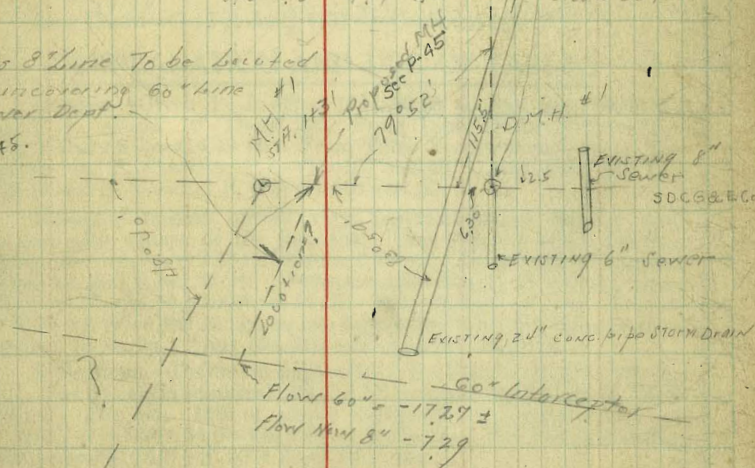 8" Line To be Located
uncovering 60" Line
Dept.
MH #1
STA. 1+31
Proposed MH
See P-45
79°52'
115.5'
D.M.H. #1
EXISTING 8"
Sewer
SDCG&ECo
12.5
6.30
EXISTING 6" Sewer
Location?
EXISTING 24" conc. pipe Storm Drain
?
60" Interceptor
Flow 60" = -17.27 ±
Flow New 8" -7.29